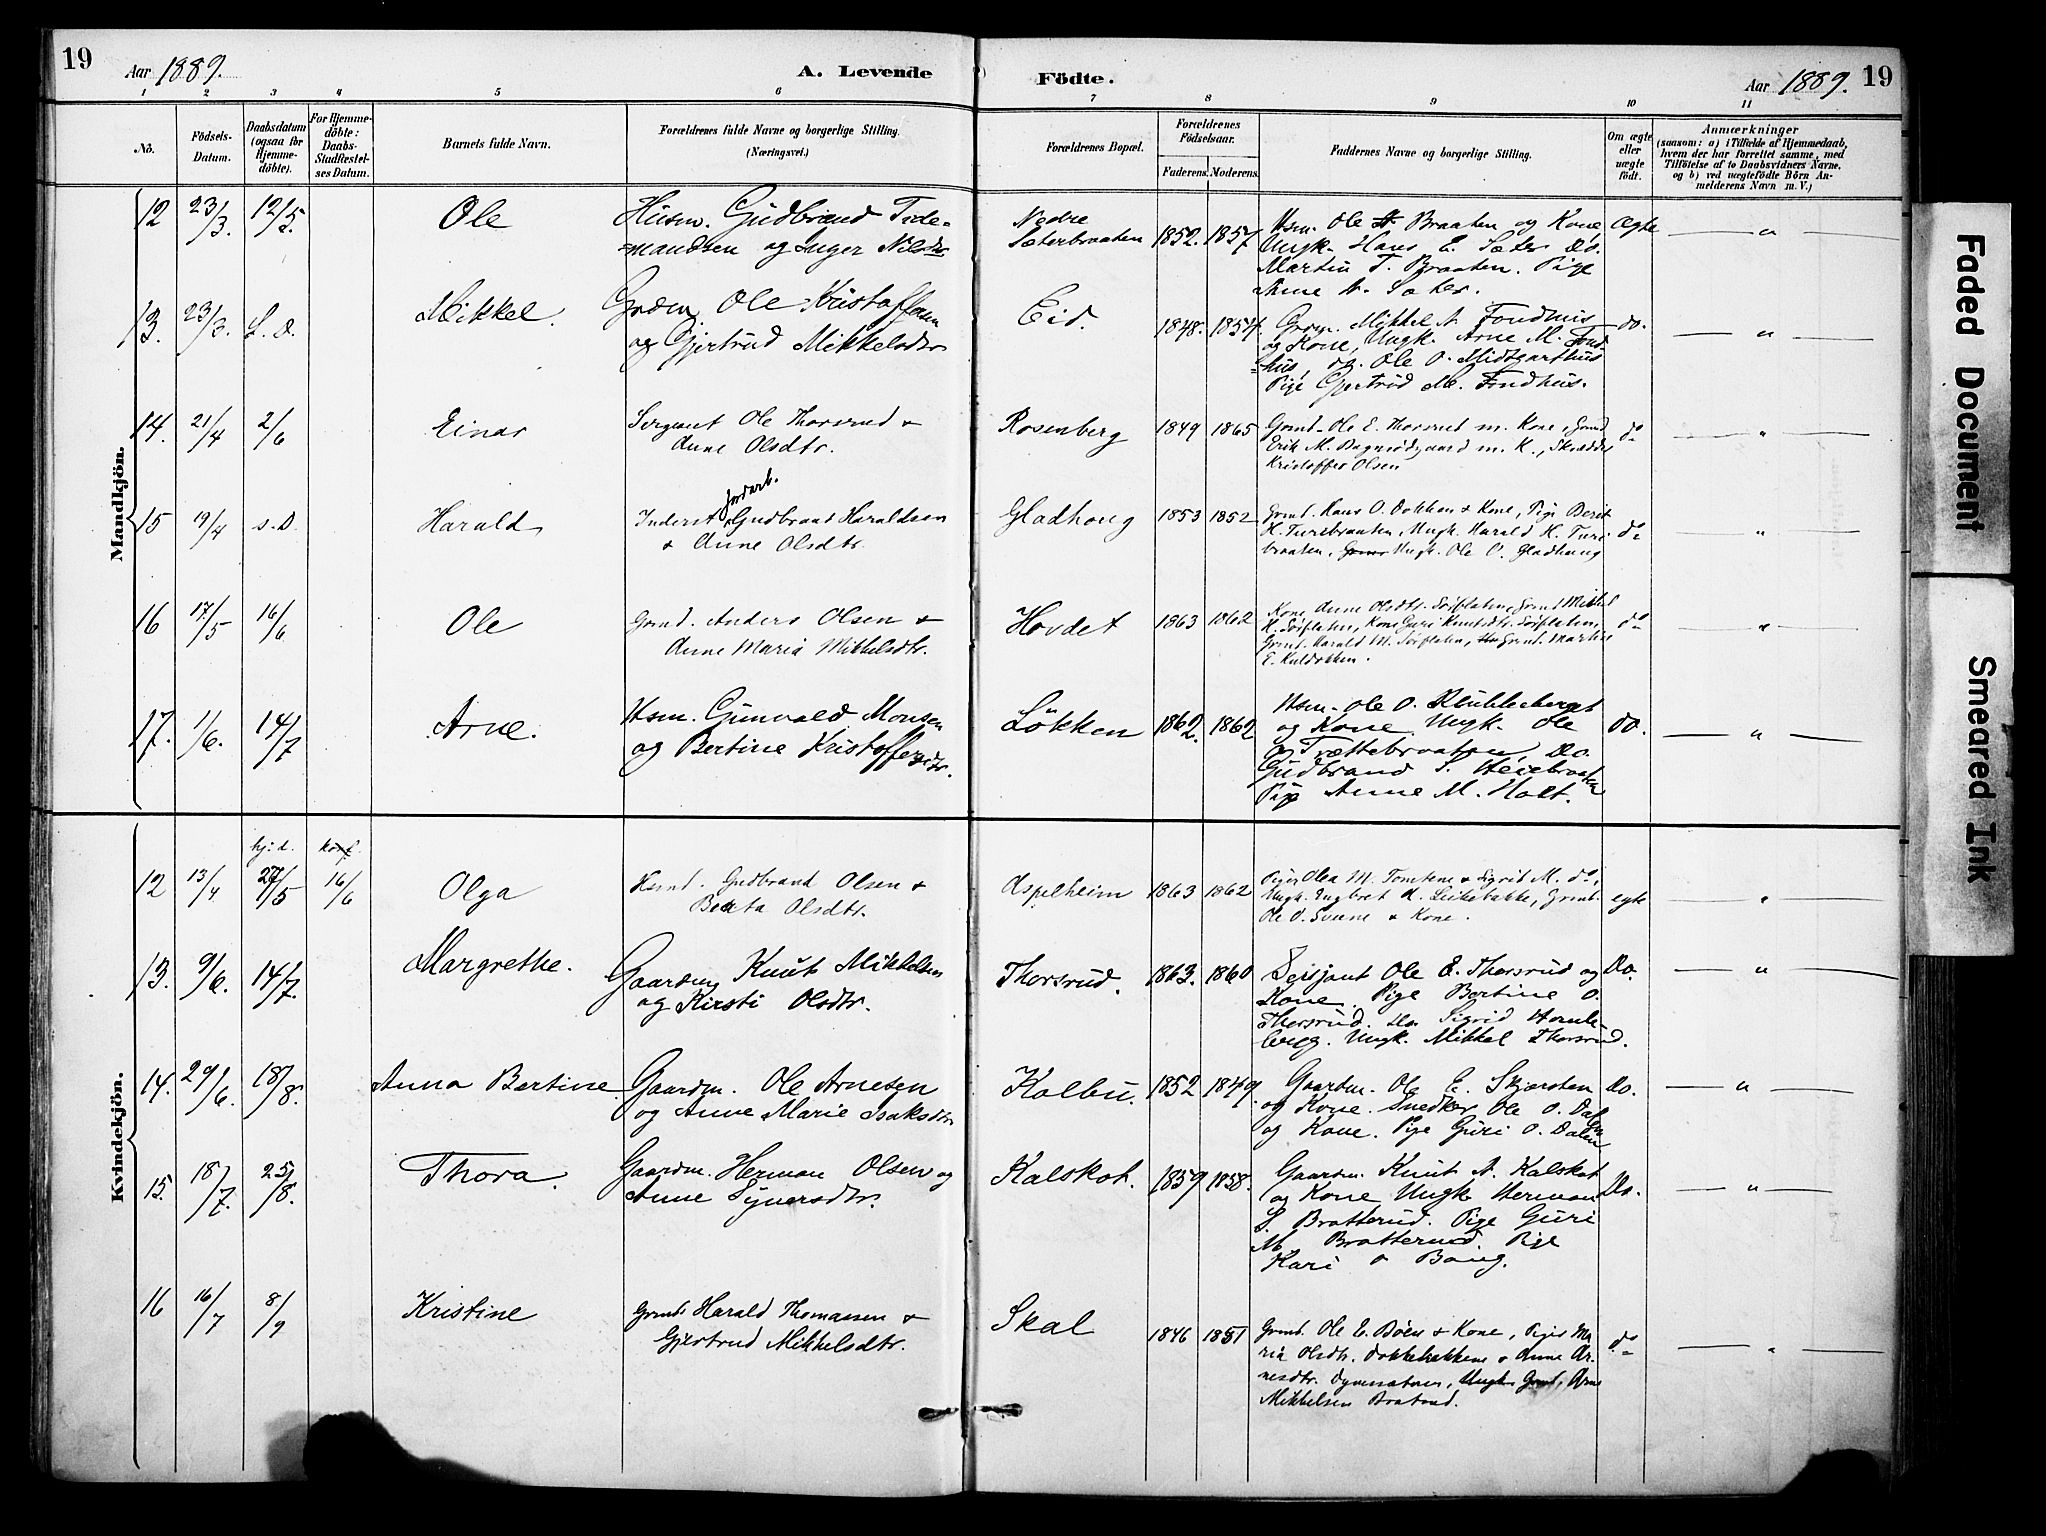 19
Aar 1889.
A. Levende
Födte.
Aar 1889.
19
1 2 3 4 5 6 7 8 9 10 11
No.
Födsels-
Datum.
Daabsdatum
(ogsaa for
Hjemme-
döbte).
For Hjemme-
döbte:
Daabs-
Stadfæstel-
ses Datum.
Barnets fulde Navn.
Forældrenes fulde Navne og borgerlige Stilling.
(Næringsvei.)
Forældrenes Bopæl.
Forældrenes
Födselsaar.
Faderens. Moderens.
Faddernes Navne og borgerlige Stilling.
Om ægte
eller
uægte
födt.
Anmærkninger
(saasom: a) i Tilfælde af Hjemmedaab,
hvem der har forrettet samme, med
Tilföielse af to Daabsvidners Navne,
og b) ved uægtefödte Börn An-
melderens Navn m. V.)
Mandkjön.
12 23/3. 12/5. Ole
Husm. Gudbrand Tide-
mandsen og Inger Nilsdtr
Nedre
Sæterbraaten
1852. 1857.
Hsm. Ole Braaten og Kone,
Ungk. Hans E. Sæter Do.
Martin T. Braaten. Pige
Anne Sæter.
Ægte
"
13. 23/3. S. D. Mikkel.
Grdm. Ole Kristoffersen
og Gjertrud Mikkelsdtr
Eid.
1848. 1854.
Grdm. Mikkel A. Fondhus
og Kone, Ungk. Arne M. Fond-
hus, do. Ole O. Midtgarthus
Pige Gjertrud M. Fondhus.
do.
"
14. 21/4 2/6 Einar
Sergeant Ole Thorsrud &
Anne Olsdtr.
Rosenberg
1849 1865
Grmd. Ole E. Thorsrud m. Kone, Grmd
Erik M. m. K., Skrædder
Kristoffer Olsen
do
"
15 19/4 s. D. Harald
jordarb.
Inderst Gudbrand Haraldsen
& Anne Olsdtr.
Gladhoug
1853 1852
Grmd. Hans O. Dokken & Kone, Pige Berit
H. Turisbraaten, Ungk. Harald K. Turis
braaten, Ungk. Ole O. Gladhaug
do
"
16 17/5 16/6 Ole
Grmd. Anders Olsen &
Anne Maria Mikkelsdtr.
Hovdet
1863 1862
Kone Anne Olsdtr. Sørflaten, Grmd Mikkel
K. Sørflaten, Kone Guri Knutsdtr. Sørflaten,
Grmd. Harald M. Sørflaten, Grmd. Martin
E. Kuldokken.
do
"
17. 1/6. 14/7 Arne.
Hsm. Gunvald Monsen
og Bertine Kristoffersdtr.
Løkken
1862. 1862
Hsm. Ole O. Klubbeberget
og Kone. Ungk. Ole
O. Trættebraaten, Do.
Gudbrand S. Heiebraaten
Pige Anne M. Holt.
do.
"
Kvindekjön.
hj: d. konf.
12 13/4 27/5 16/6 Olga
Hsmd. Gudbrand Olsen &
Berta Olsdtr.
Aspelheim
1863 1862
Piger Olea M. Tomtene & Sigrid M. do,
Ungk. Engbret A. Leikebakke, Grmd.
Ole O. Sveine & Kone.
egte
"
13. 9/6. 14/7. Margrethe.
Gaardm Knut Mikkelsen
og Kirsti Olsdtr.
Thorsrud.
1863. 1860
Sersjant Ole E. Thorsrud og
Kone. Pige Bertine O.
Thorsrud. Do. Sigrid Homle-
berg. Ungk. Mikkel Thorsrud.
Do.
"
14. 29/6. 18/8. Anna Bertine
Gaardm. Ole Arnesen
og Anne Marie Isaksdtr
Kolbu.
1852 1849.
Gaardm. Ole E. Skjærsten
og Kone. Snedker Ole O. Dalen
og Kone. Pige Guri O. Dalen
Do.
"
15. 18/7. 25/8. Thora.
Gaardm. Herman Olsen og
Anne Syversdtr.
Kalskot.
1859 1858.
Gaardm. Knut A. Kalskot
og Kone Ungk Herman
S. Bratterud. Pige Guri
M. Bratterud Pige
Kari O Bang.
Do.
"
16 16/7 8/9 Kristine
Grmd. Harald Thomassen &
Gjertrud Mikkelsdtr.
Skal
1846 1851
Grmd. Ole E. Bøen & Kone, Piger Ma
ria Olsdtr. Dokkebakkene & Anne Ar-
nesdtr. Ungk Grmd. Arne
Mikkelsen Bratrud.
do
"
Faded Document
Smeared Ink